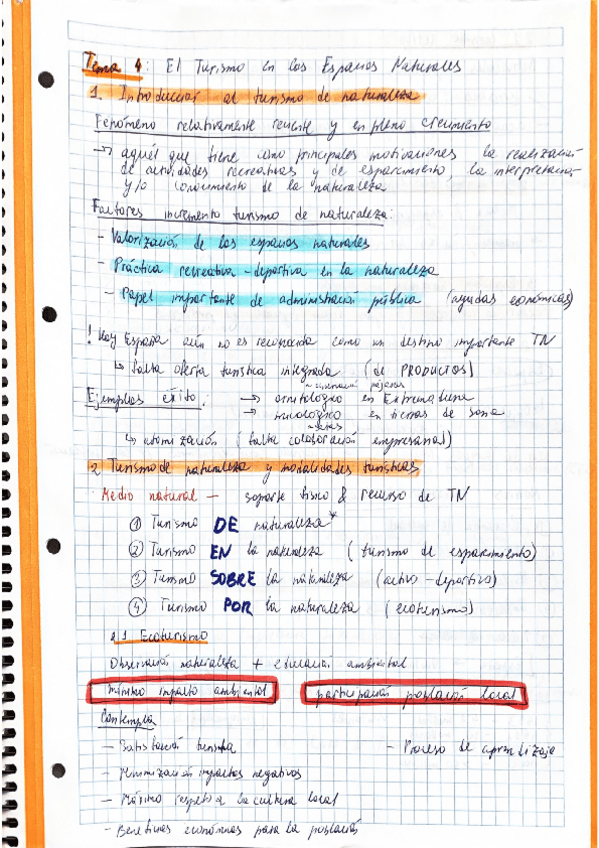 Tema 4: El Turismo en los Espacios Naturales
1. Introducción al turismo de naturaleza
Fenómeno relativamente reciente y en pleno crecimiento
→ aquél que tiene como principales motivaciones la realización
de actividades recreativas y de esparcimiento, la interpretación
y/o conocimiento de la naturaleza
Factores incremento turismo de naturaleza:
- Valorización de los espacios naturales
- Práctica recreativa-deportiva en la naturaleza
- Papel importante de administración pública (ayudas económicas)
! Hoy España aún no es reconocida como un destino importante TN
↳ falta oferta turística integrada (de PRODUCTOS)
~ pájaros
Ejemplos éxito: → ornitológico en Extremadura
→ micológico en tierras de Soria
~ setas
↳ atomización (falta colaboración empresarial)
2 Turismo de naturaleza y modalidades turísticas
Medio natural — soporte físico & recurso de TN
① Turismo DE naturaleza*
② Turismo EN la naturaleza (turismo de esparcimiento)
③ Turismo SOBRE la naturaleza (activo-deportivo)
④ Turismo POR la naturaleza (ecoturismo)
2.1 Ecoturismo
Observación naturaleza + educación ambiental
mínimo impacto ambiental participación población local
Contempla
- Satisfacción turista - Proceso de aprendizaje
- Minimización impactos negativos
- Máximo respeto a la cultura local
- Beneficios económicos para la población